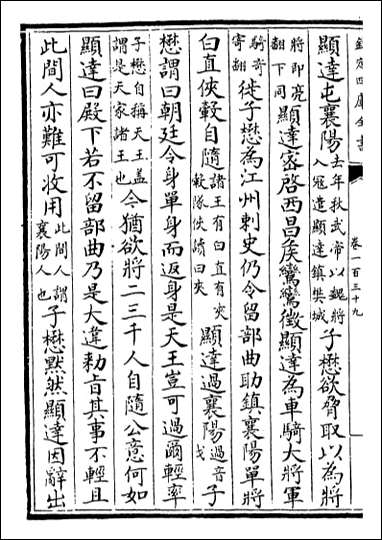 欽定四庫全書
卷一百三十九
顯達屯襄陽去年秋武帝以魏將入寇遣顯達鎮樊城子懋欲脅取以為將
將即亮翻下同顯達密啓西昌侯鸞鸞徵顯達為車騎大將軍
騎奇寄翻徙子懋為江州刺史仍令留部曲助鎮襄陽單將
白直俠轂自隨諸王有白直有夾轂隊俠讀曰夾顯達過襄陽過音戈子
懋謂曰朝廷令身單身而返身是天王豈可過爾輕率
子懋自稱天王蓋謂是天家諸王也今猶欲將二三千人自隨公意何如
顯達曰殿下若不留部曲乃是大違勅旨其事不輕且
此間人亦難可收用此間人謂襄陽人也子懋默然顯達因辭出